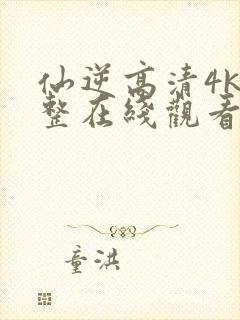 仙逆高清4K
整在綫觀看
童洪